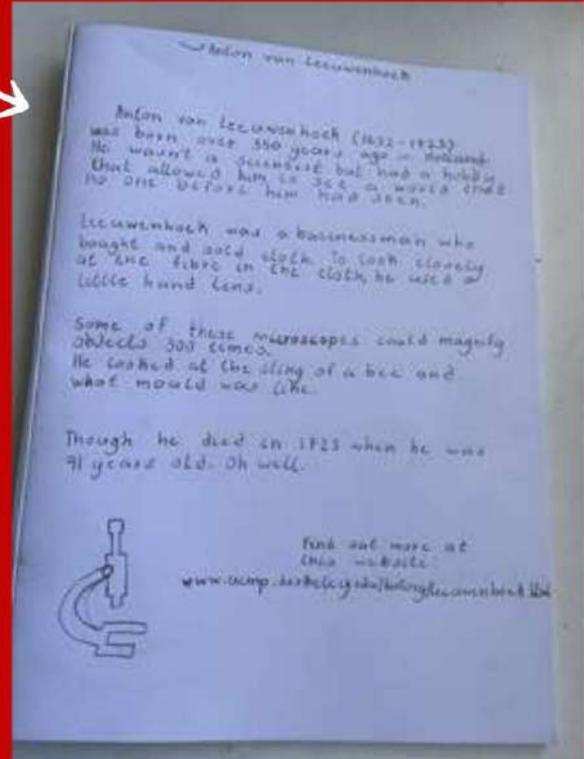 Anton van Leeuwenhoek
Anton van Leeuwenhoek (1632-1723)
was born over 350 years ago in Holland.
He wasn't a scientist but had a hobby
that allowed him to see a world that
no one before him had seen.
Leeuwenhoek was a businessman who
bought and sold cloth. To look closely
at the fibre in the cloth, he used a
little hand lens.
Some of these microscopes could magnify
objects 300 times.
He looked at the sting of a bee and
what mould was like.
Though he died in 1723 when he was
91 years old. Oh well.
Find out more at
this website: